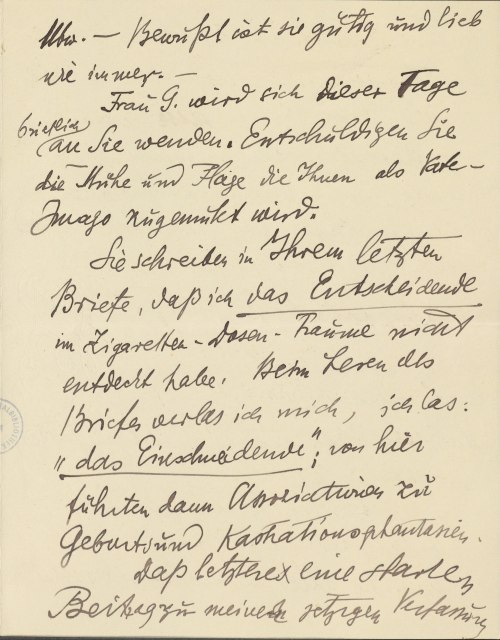 Ubw. — Bewußt ist sie gütig und lieb
wie immer. —
Frau G. wird sich dieser Tage
brieflich
an Sie wenden. Entschuldigen Sie
die Mühe und Plage die Ihnen als Vater-
Imago zugemutet wird.
Sie schreiben in Ihrem letzten
Briefe, daß ich das Entscheidende
im Zigaretten-Dosen-Traume nicht
entdeckt habe. Beim Lesen des
Briefes verlas ich mich, ich las:
"das Einschneidende"; von hier
führten dann Associationen zu
Geburt und Kastrationsphantasien.
Daß letztere einen starken
Beitrag zu meiner jetzigen Verfassung